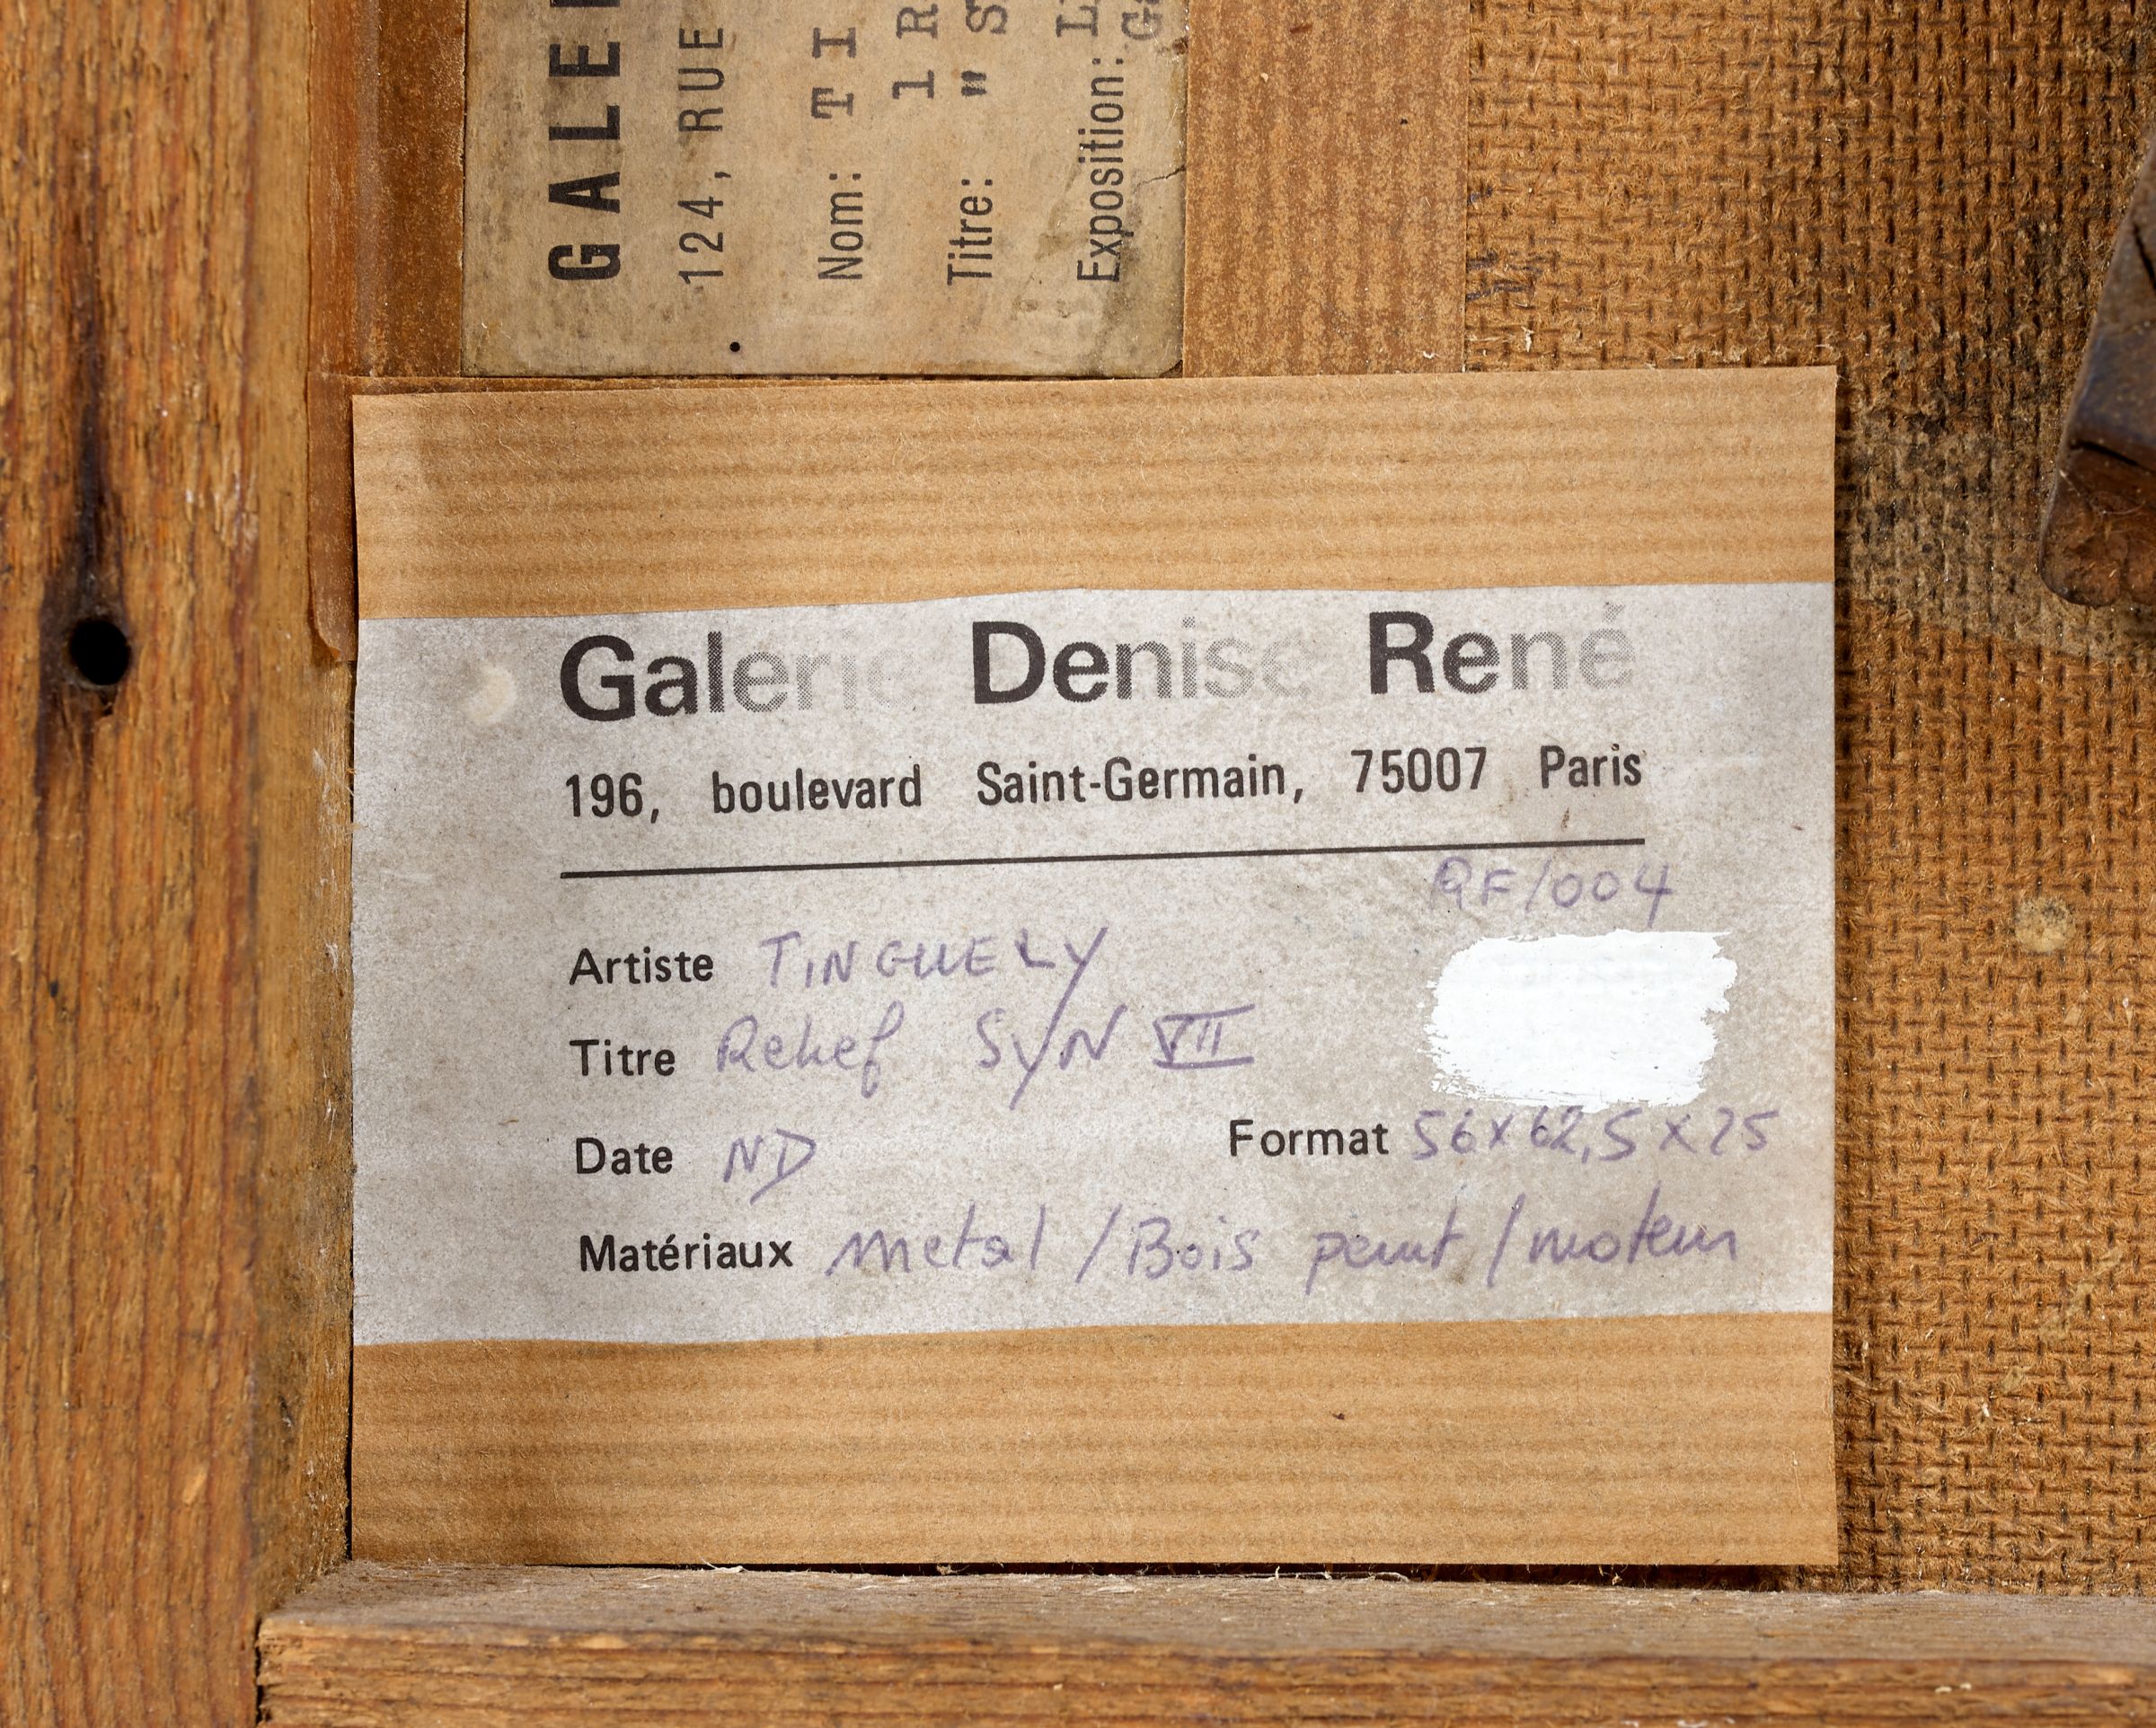 GALE
124, RUE
Nom: TI
1 R
Titre: " S
Exposition: L
G
Galerie Denise René
196, boulevard Saint-Germain, 75007 Paris
RF/004
Artiste TINGUELY
Titre Relief SYN VII
Date ND Format 56x62,5x25
Matériaux Metal / Bois peint / moteur